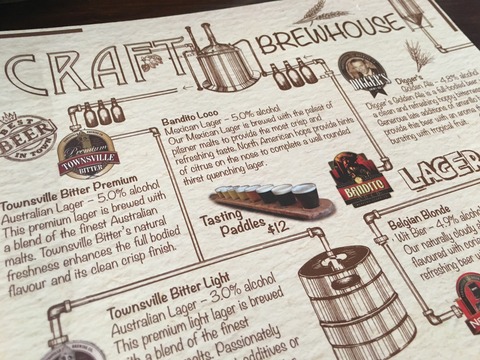 CRAFT BREWHOUSE
BEST
BEER
IN TOWN
Premium
TOWNSVILLE
BITTER
Townsville Bitter Premium
Australian Lager - 5.0% alcohol
This premium lager is brewed with
a blend of the finest Australian
malts. Townsville Bitter's natural
freshness enhances the full bodied
flavour and its clean crisp finish.
Bandito Loco
Mexican Lager - 5.0% alcohol
Our Mexican Lager is brewed with the palest of
pilsner malts to provide the most crisp and
refreshing taste. North American hops provide hints
of citrus on the nose to complete a well rounded
thirst quenching lager.
Tasting
Paddles $12
DIGGER'S
Digger's
Golden Ale - 4.8% alcohol
Digger's Golden Ale is a full-bodied beer
a clean and refreshing hoppy bitterness
Generous late additions of amarillo
provide this beer with an aroma
bursting with tropical fruit.
BANDITO
LAGER
Belgian Blonde
Wit Bier - 4.9% alcohol
Our naturally cloudy
flavoured with
refreshing beer
Townsville Bitter Light
Australian Lager - 3.0% alcohol
This premium light lager is brewed
with a blend of the finest
malts. Passionately
additives or